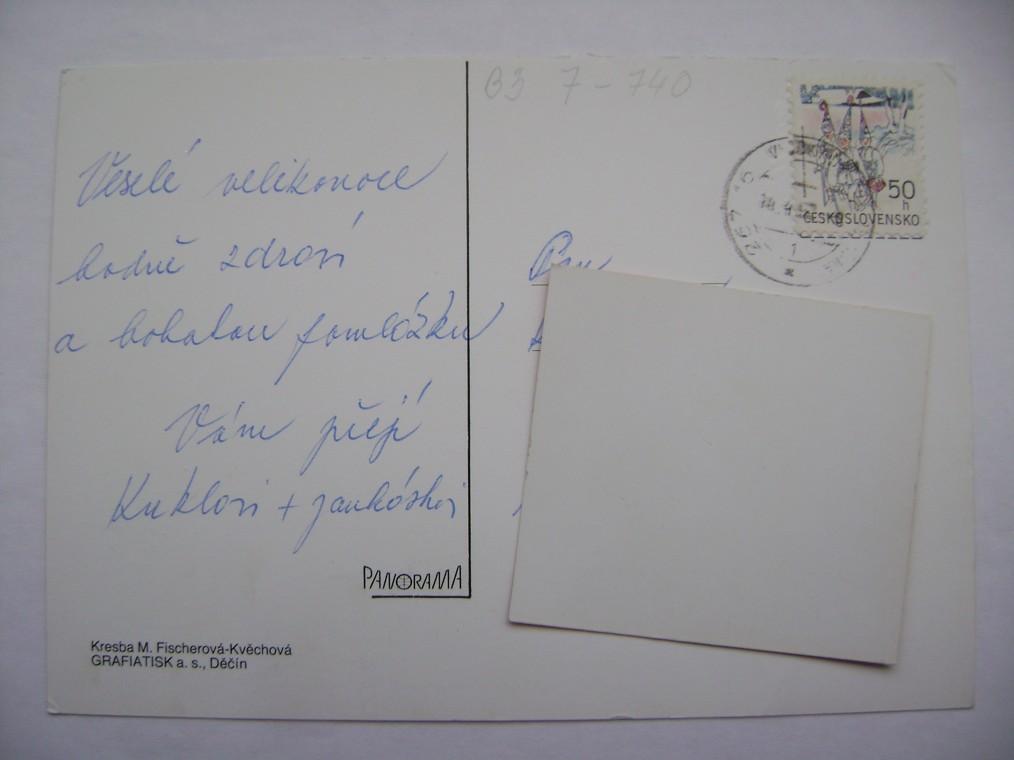 B3 7-740
50
h
ČESKOSLOVENSKO
257
1
Veselé velikonoce
hodně zdraví
a bohatou pomlázku
Vám přejí
Kuklovi +
Pan
PANORAMA
Kresba M. Fischerová-Kvěchová
GRAFIATISK a. s., Děčín